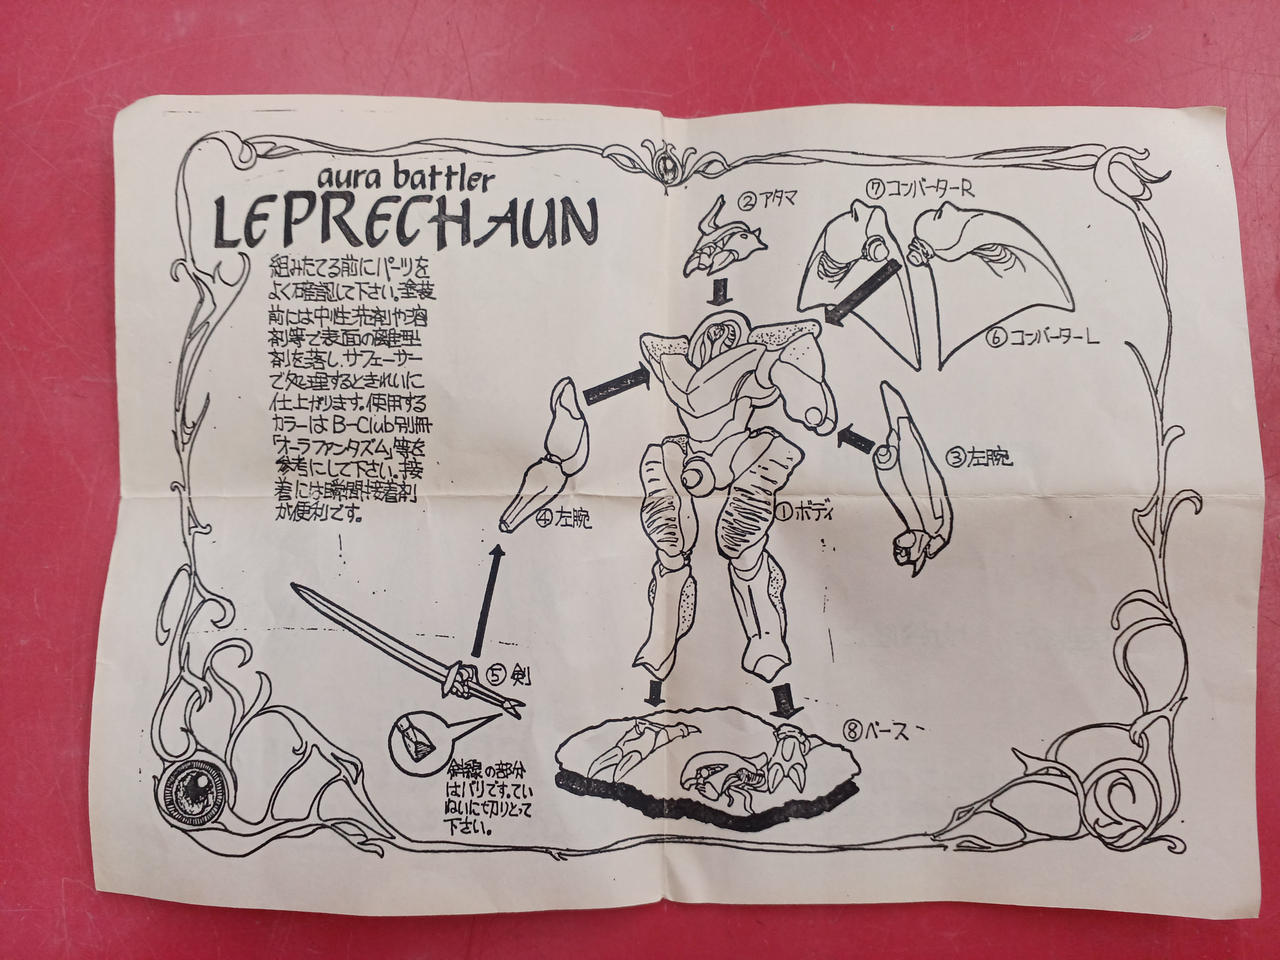 aura battler
LEPRECHAUN
組みたてる前にパーツを
よく確認して下さい。塗装
前には中性洗剤や溶
剤等で表面の離型
剤を落し、サフェーサー
で処理するときれいに
仕上がります。使用する
カラーはB-Club別冊
「オーラファンタズム」等を
参考にして下さい。接
着には瞬間接着剤
が便利です。
②アタマ
⑦コンバーターR
⑥コンバーターL
③左腕
④左腕
①ボディ
⑤剣
⑧ベース
斜線の部分
はバリです。てい
ねいに切りとって
下さい。